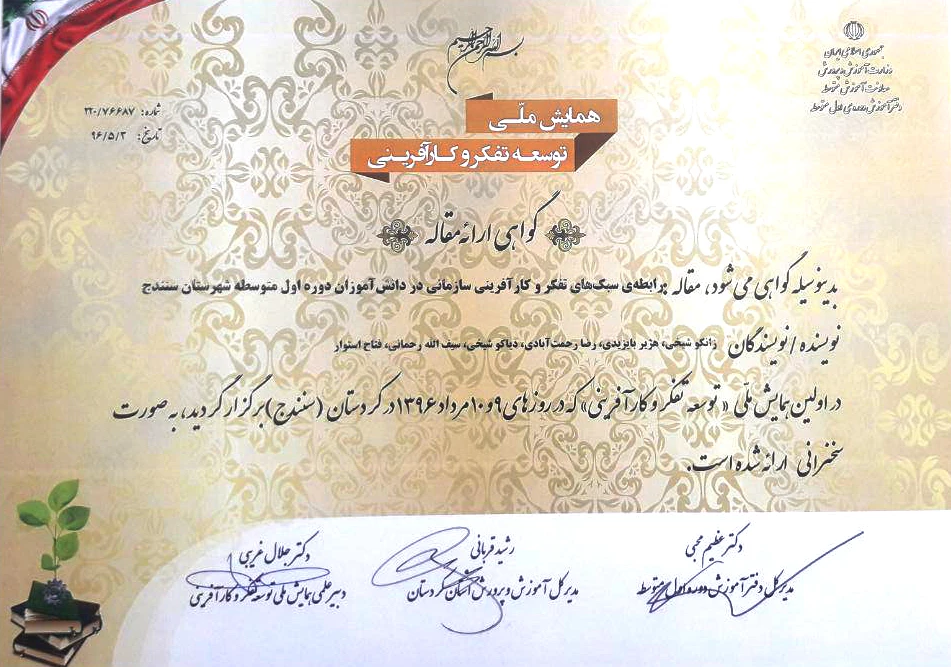 بسم الله الرحمن الرحیم
جمهوری اسلامی ایران
وزارت آموزش و پرورش
معاونت آموزش متوسطه
دفتر آموزش دوره‌ی اول متوسطه
شماره: ۲۲۰/۷۶۶۸۷
تاریخ: ۹۶/۵/۳
همایش ملّی
توسعه تفکر و کارآفرینی
گواهی ارائه مقاله
بدینوسیله گواهی می شود، مقاله برابطه‌ی سبک‌های تفکر و کارآفرینی سازمانی در دانش‌آموزان دوره اول متوسطه شهرستان سنندج
نویسنده / نویسندگان زانکو شیخی، هژیر بایزیدی، رضا رحمت‌آبادی، دیاکو شیخی، سیف الله رحمانی، فتاح استوار
در اولین همایش ملّی «توسعه تفکر و کارآفرینی» که در روزهای ۹ و ۱۰ مرداد ۱۳۹۶ در کردستان (سنندج) برگزار گردید، به صورت
سخنرانی ارائه شده است.
دکتر عظیم محبی
مدیر کل دفتر آموزش دوره اول متوسطه
رشید قربانی
مدیر کل آموزش و پرورش استان کردستان
دکتر جلال غریبی
دبیر علمی همایش ملی توسعه تفکر و کارآفرینی